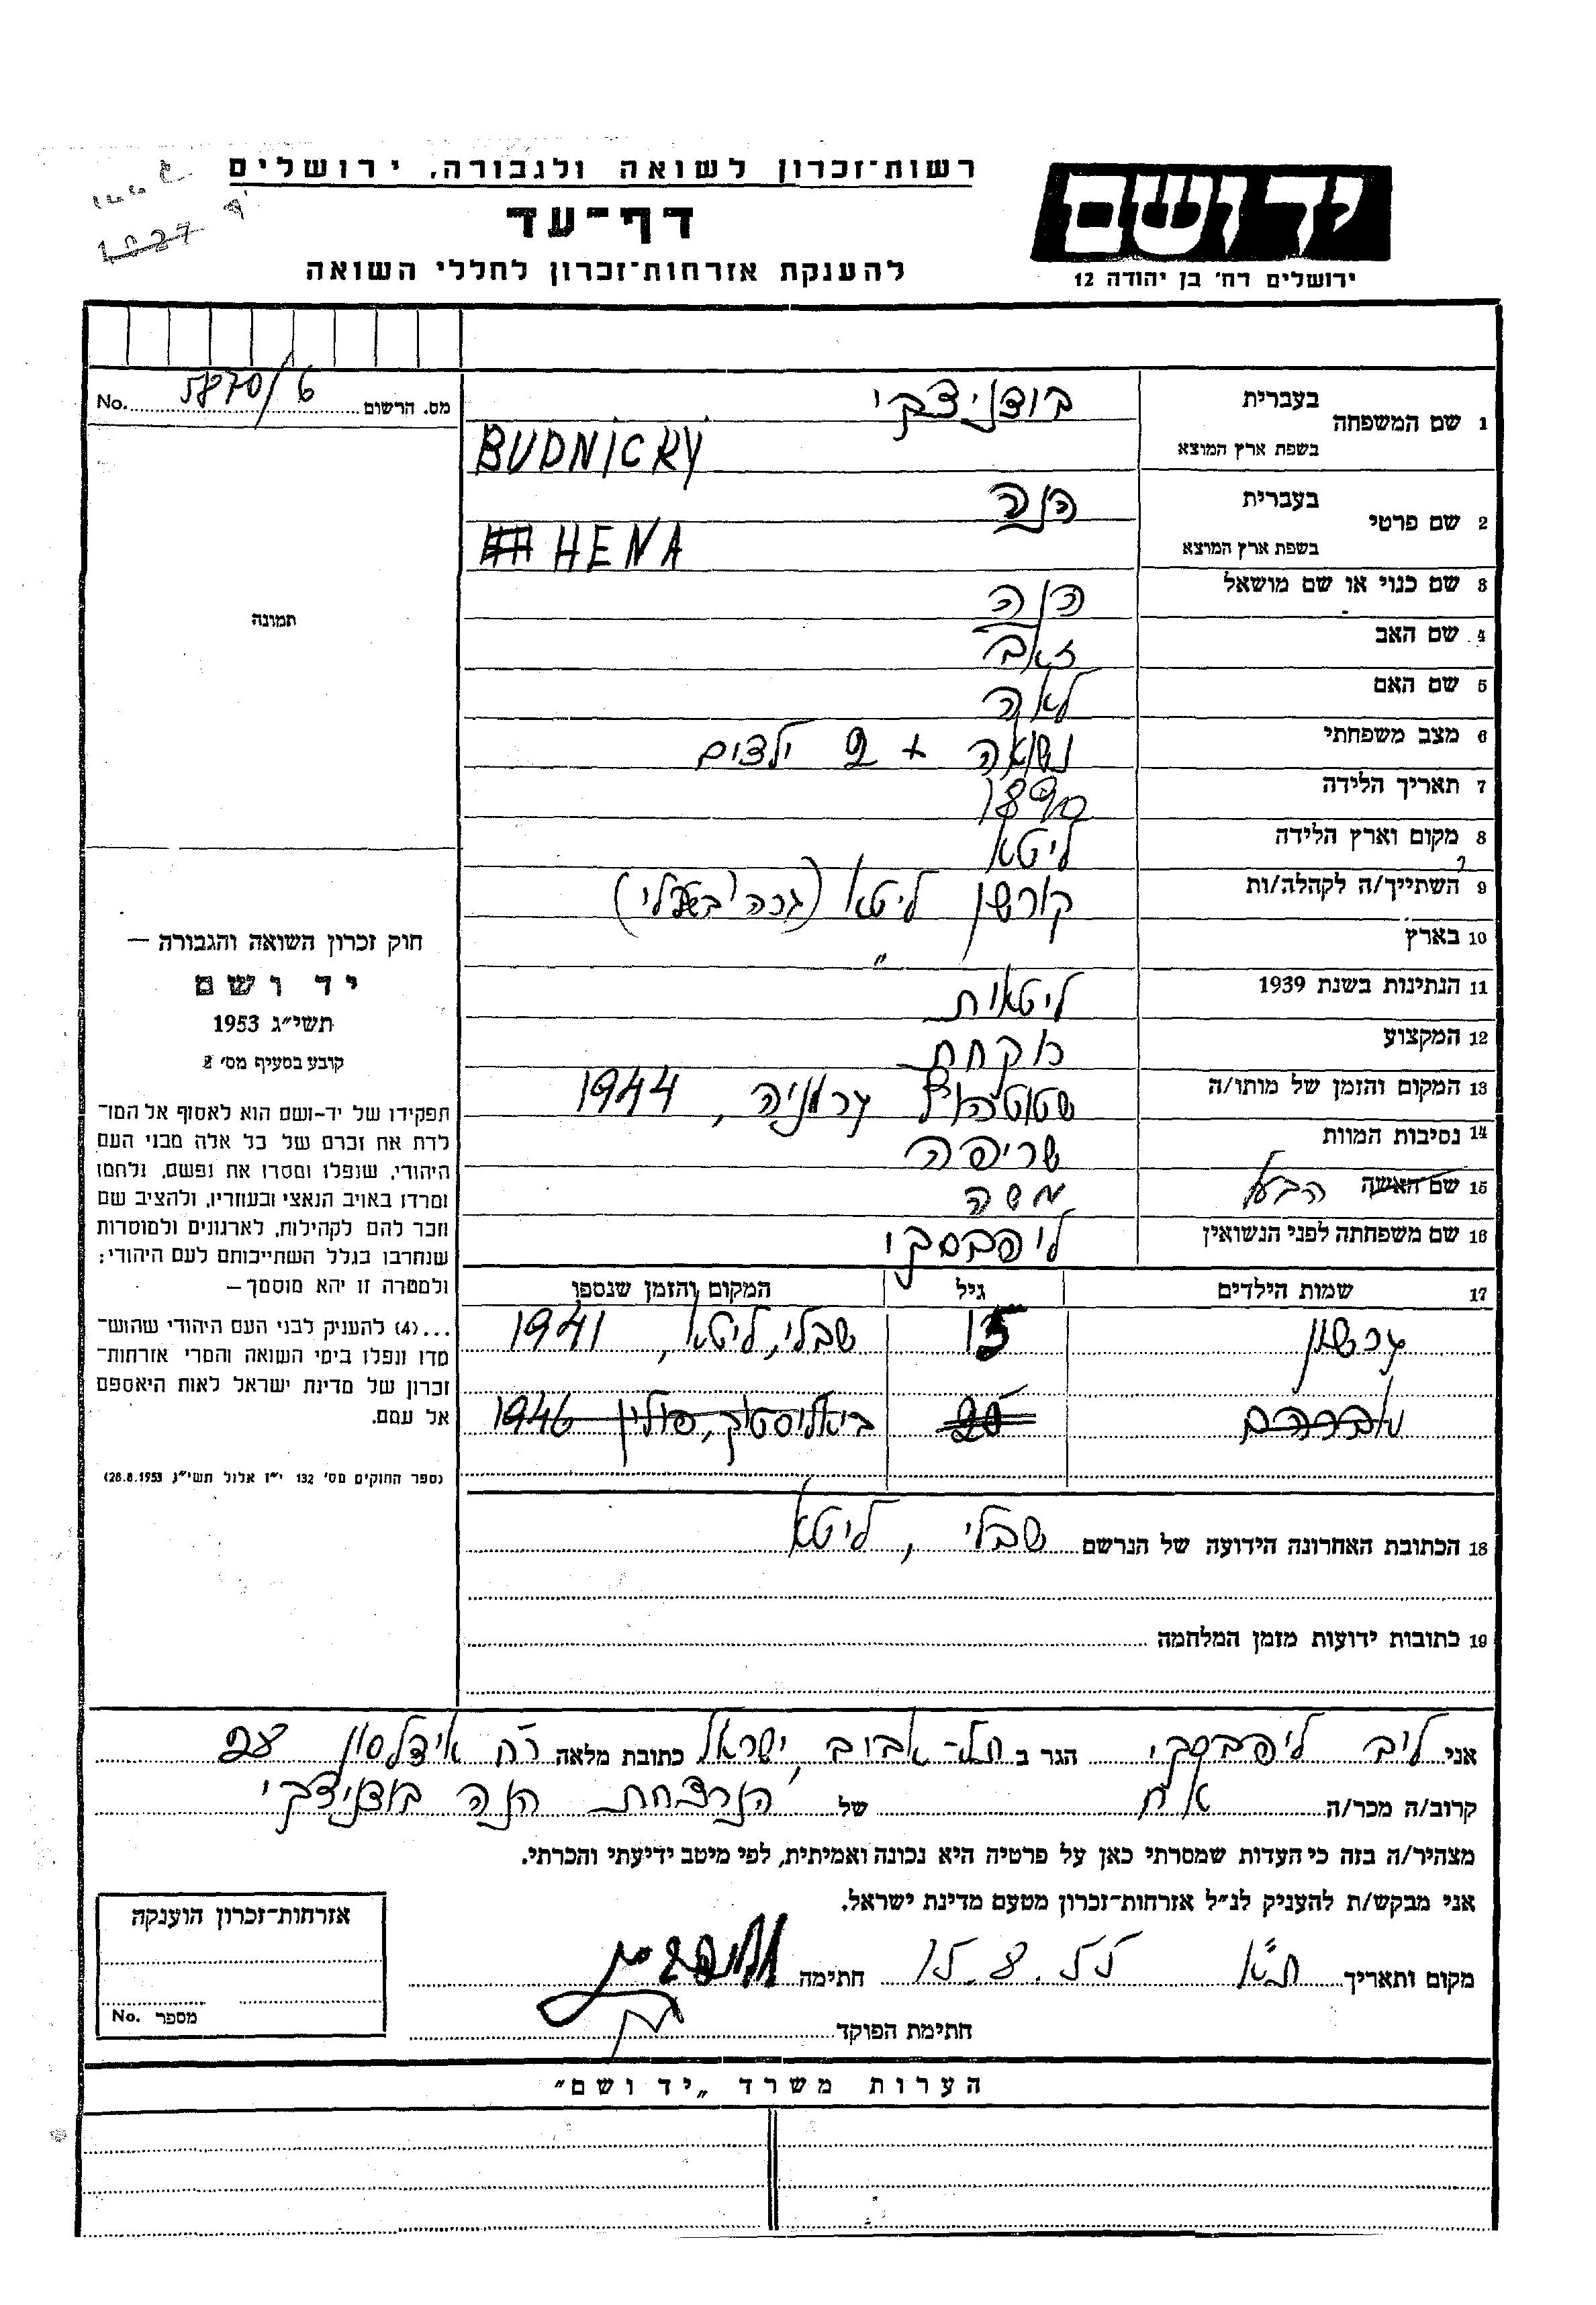 רשות־זכרון לשואה ולגבורה, ירושלים
דף־עד
להענקת אזרחות־זכרון לחללי השואה
יד ושם
ירושלים רח' בן יהודה 12
1027
מס. הרשום 5870/6 No.
1 שם המשפחה בעברית בודניצקי
בשפת ארץ המוצא BUDNICKY
2 שם פרטי בעברית הנה
בשפת ארץ המוצא HENA
3 שם כנוי או שם מושאל הנה
4 שם האב זאב
5 שם האם לאה
6 מצב משפחתי נשואה + 2 ילדים
7 תאריך הלידה 1890
8 מקום וארץ הלידה ליטא
9 השתייך/ה לקהלה/ות קורשן ליטא (גרה בשבלי)
10 בארץ "
11 הנתינות בשנת 1939 ליטאית
12 המקצוע רוקחת
13 המקום והזמן של מותו/ה שטוטהוף גרמניה, 1944
14 נסיבות המוות שריפה
15 שם האשה הבעל משה
16 שם משפחתה לפני הנשואין ליפבסקי
17 שמות הילדים גיל המקום והזמן שנספו
גרשון 15 שבלי, ליטא, 1941
אברהם 20 ביאליסטוק, פולין 1946
18 הכתובת האחרונה הידועה של הנרשם שבלי, ליטא
19 כתובות ידועות מזמן המלחמה
תמונה
חוק זכרון השואה והגבורה —
יד ושם
תשי"ג 1953
קובע בסעיף מס' 2
תפקידו של יד-ושם הוא לאסוף אל המו־
לדת את זכרם של כל אלה מבני העם
היהודי, שנפלו ומסרו את נפשם, נלחמו
ומרדו באויב הנאצי ובעוזריו, ולהציב שם
וזכר להם לקהילות, לארגונים ולמוסדות
שנחרבו בגלל השתייכותם לעם היהודי;
ולמטרה זו יהא מוסמך —
...(4) להעניק לבני העם היהודי שהוש־
מדו ונפלו בימי השואה והמרי אזרחות־
זכרון של מדינת ישראל לאות היאספם
אל עמם.
(ספר החוקים מס' 132 י"ז אלול תשי"ג 28.8.1953)
אני ליב ליפבסקי הגר ב תל-אביב, ישראל כתובת מלאה רח אידלסון
קרוב/ה מכר/ה אח של הנרצחת הנה בודניצקי
מצהיר/ה בזה כי העדות שמסרתי כאן על פרטיה היא נכונה ואמיתית, לפי מיטב ידיעתי והכרתי.
אני מבקש/ת להעניק לנ"ל אזרחות־זכרון מטעם מדינת ישראל.
מקום ותאריך ת"א 15.8.55 חתימה
חתימת הפוקד
אזרחות־זכרון הוענקה
מספר No.
הערות משרד „יד ושם"